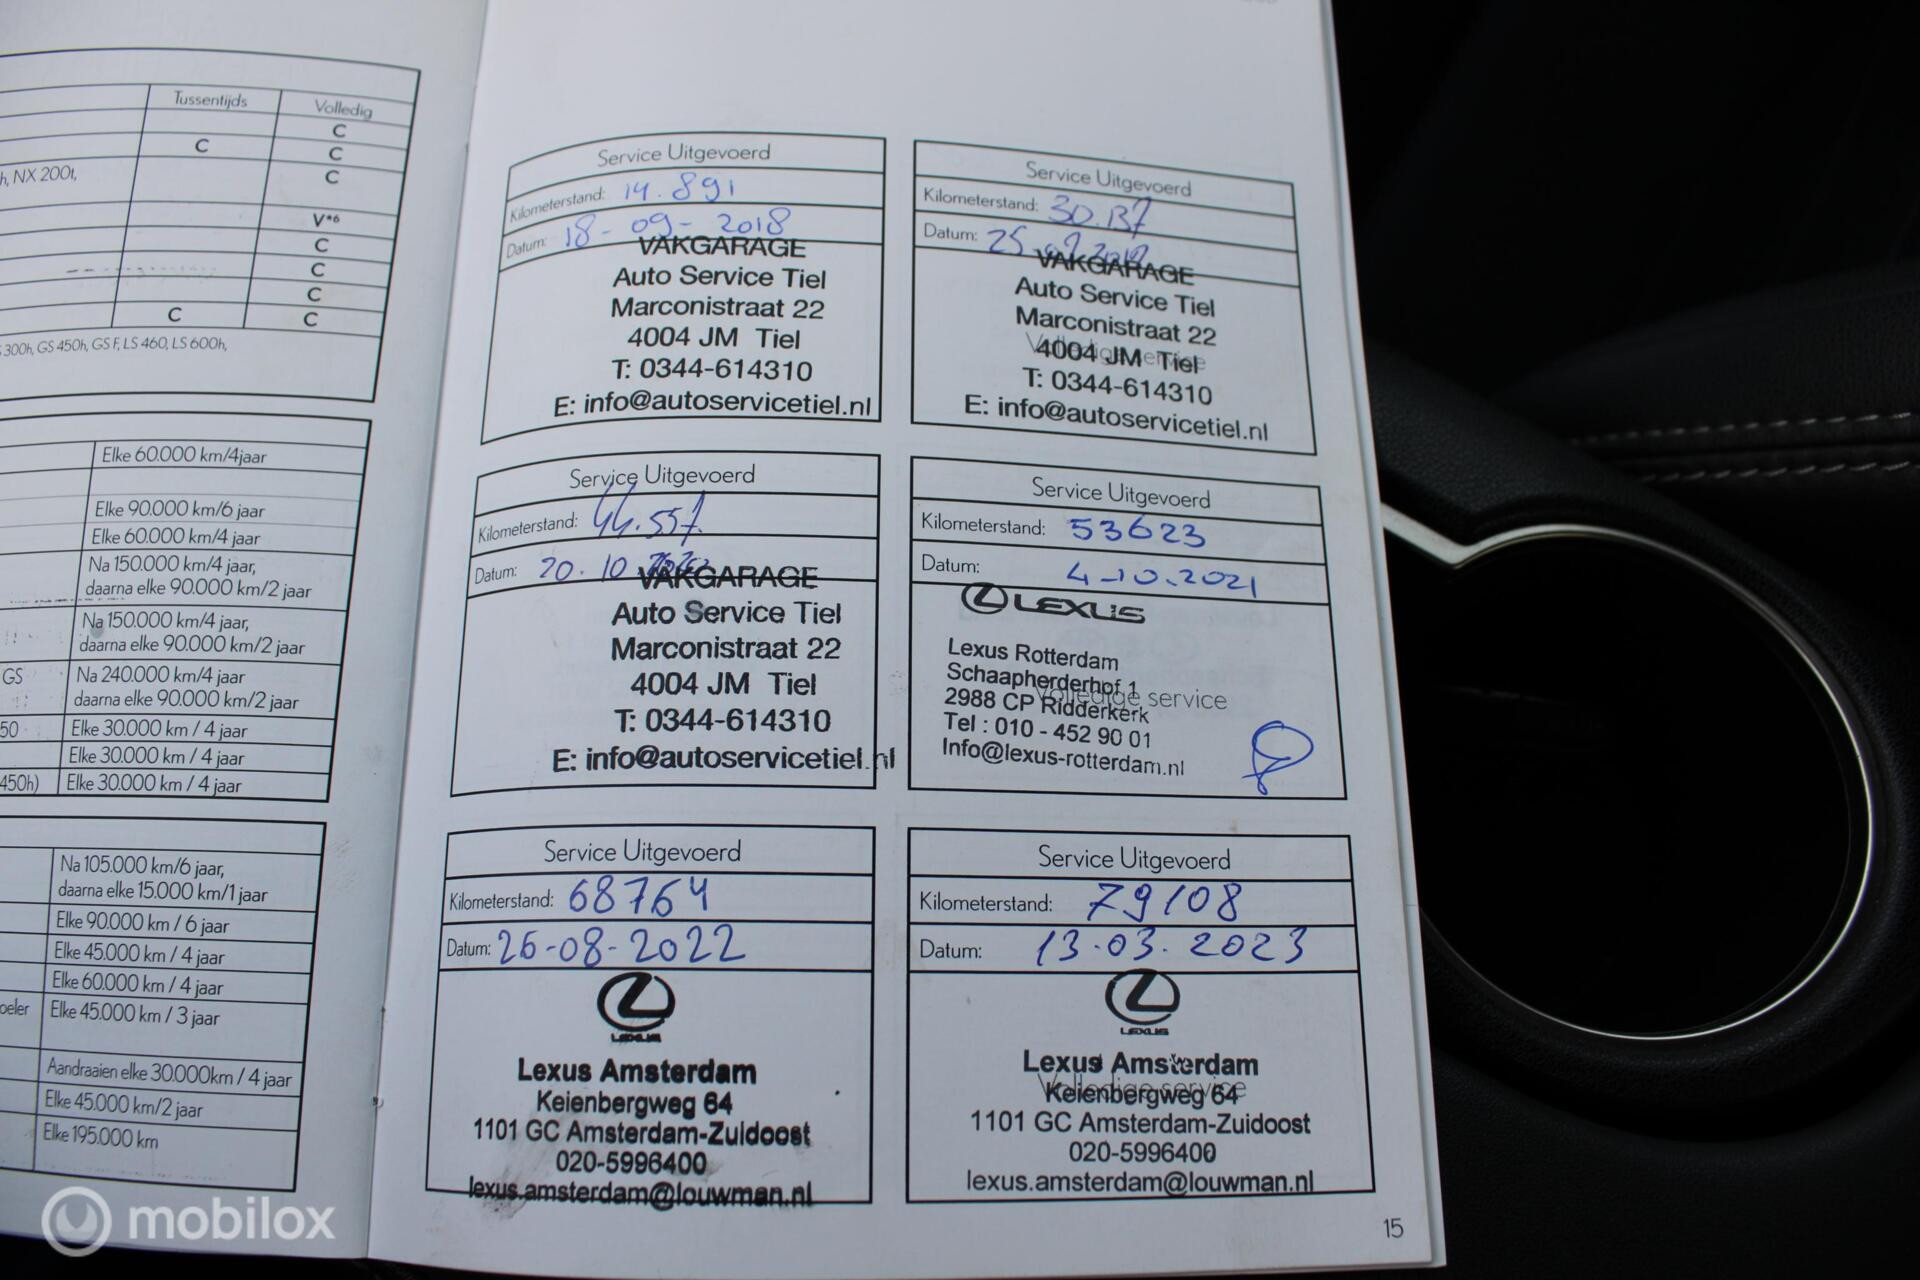 Tussentijds Volledig
C
C C
h, NX 200t, C
V*6
C
C
C
C C
300h, GS 450h, GS F, LS 460, LS 600h,
Elke 60.000 km/4jaar
Elke 90.000 km/6 jaar
Elke 60.000 km/4 jaar
Na 150.000 km/4 jaar,
daarna elke 90.000 km/2 jaar
Na 150.000 km/4 jaar,
daarna elke 90.000 km/2 jaar
GS Na 240.000 km/4 jaar
daarna elke 90.000 km/2 jaar
50 Elke 30.000 km / 4 jaar
Elke 30.000 km / 4 jaar
450h) Elke 30.000 km / 4 jaar
Na 105.000 km/6 jaar,
daarna elke 15.000 km/1 jaar
Elke 90.000 km / 6 jaar
Elke 45.000 km / 4 jaar
Elke 60.000 km / 4 jaar
oeler Elke 45.000 km / 3 jaar
Aandraaien elke 30.000km / 4 jaar
Elke 45.000 km/2 jaar
Elke 195.000 km
Service Uitgevoerd
Kilometerstand: 14.891
Datum: 18-09-2018
VAKGARAGE
Auto Service Tiel
Marconistraat 22
4004 JM Tiel
T: 0344-614310
E: info@autoservicetiel.nl
Service Uitgevoerd
Kilometerstand: 30.137
Datum: 25
VAKGARAGE
Auto Service Tiel
Marconistraat 22
Volledige service
4004 JM Tiel
T: 0344-614310
E: info@autoservicetiel.nl
Service Uitgevoerd
Kilometerstand: 44.557
Datum: 20.10
VAKGARAGE
Auto Service Tiel
Marconistraat 22
4004 JM Tiel
T: 0344-614310
E: info@autoservicetiel.nl
Service Uitgevoerd
Kilometerstand: 53623
Datum: 4-10.2021
LEXUS
Lexus Rotterdam
Schaapherderhof 1
Volledige service
2988 CP Ridderkerk
Tel : 010 - 452 90 01
Info@lexus-rotterdam.nl
Service Uitgevoerd
Kilometerstand: 68764
Datum: 26-08-2022
LEXUS
Lexus Amsterdam
Keienbergweg 64
1101 GC Amsterdam-Zuidoost
020-5996400
lexus.amsterdam@louwman.nl
Service Uitgevoerd
Kilometerstand: 79108
Datum: 13.03.2023
LEXUS
Lexus Amsterdam
Volledige service
Keienbergweg 64
1101 GC Amsterdam-Zuidoost
020-5996400
lexus.amsterdam@louwman.nl
15
mobilox